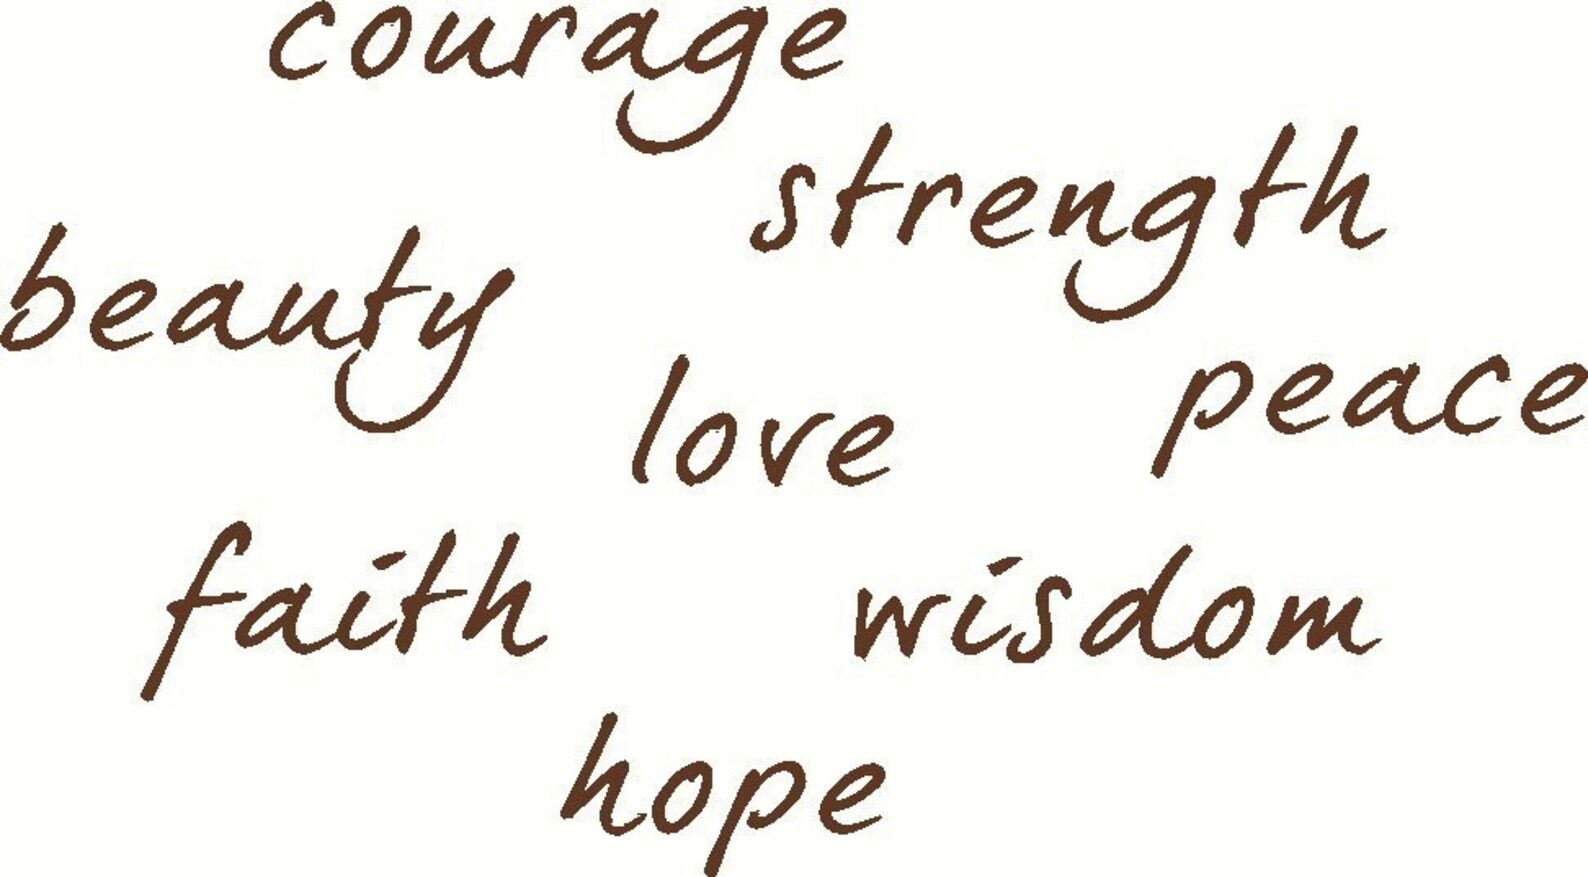 courage
strength
beauty
love
peace
faith
wisdom
hope